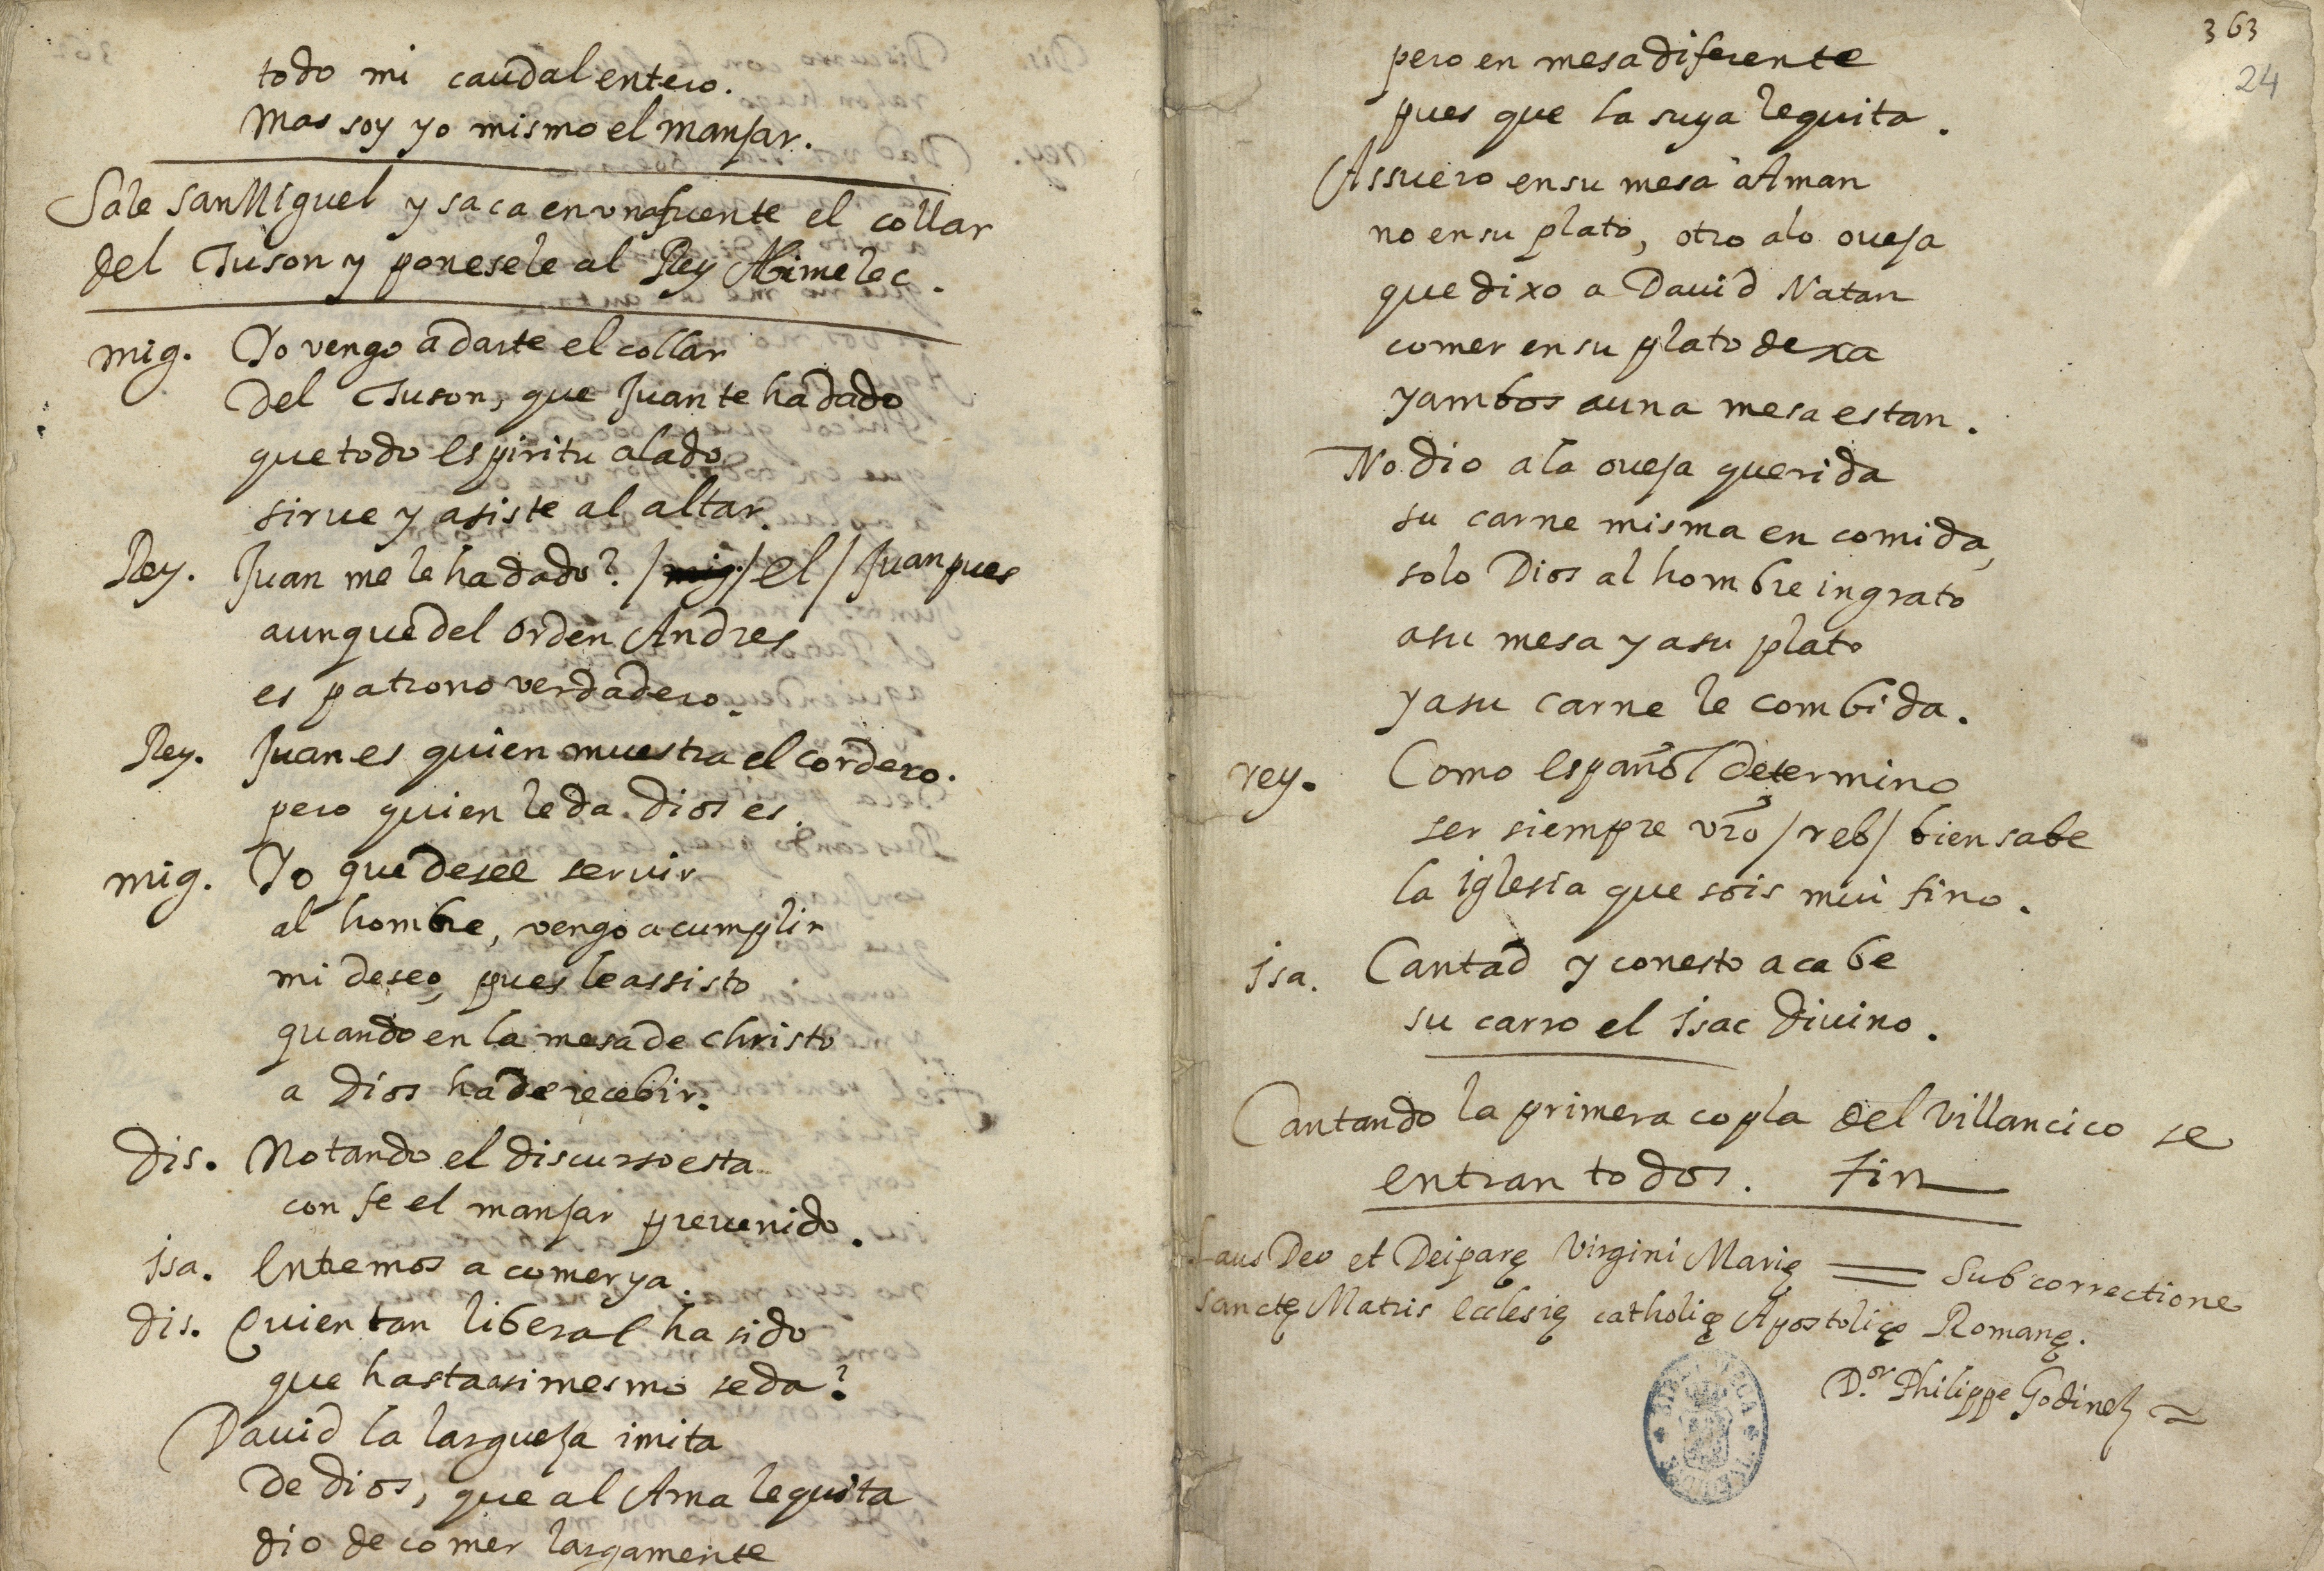 todo mi caudal entero.
Mas soy yo mismo el manjar.
Sale San Miguel y saca en una fuente el collar
del Tuson y ponesele al Rey Abimelec.
mig. Yo vengo a darte el collar
Del Tuson, que Juan te ha dado
que todo espiritu alado
sirue y asiste al altar.
Rey. Juan me le ha dado? / mig / el / Juan pues
aunque del orden Andres
es patrono verdadero.
Rey. Juan es quien muestra el cordero.
pero quien le da Dios es.
mig. Yo que desee seruir
al hombre, vengo a cumplir
mi deseo, pues le assisto
quando en la mesa de christo
a Dios ha de recebir.
Dis. Notando el discurso esta
con fe el manjar preuenido.
Isa. Entremos a comer ya.
dis. Quien tan liberal ha sido
que hasta asi mesmo se da?
Dauid la largueza imita
De Dios, que al Amalequita
dio de comer largamente
363
24
pero en mesa diferente
pues que la suya le quita.
Assuero en su mesa a Aman
no en su plato, otro a la oueja
que dixo a Dauid Natan
comer en su plato dexa
y ambos a una mesa estan.
No dio a la oueja querida
su carne misma en comida,
solo Dios al hombre ingrato
a su mesa y a su plato
y a su carne le combida.
rey. Como español determino
ser siempre vro / reb / bien sabe
la iglesia que sois mui fino.
Isa. Cantad y con esto acabe
su carro el Isac Diuino.
Cantando la primera copla del villancico se
entran todos. Fin
Laus Deo et Deiparę Virgini Marię = Sub correctione
sanctę Matris Ecclesię catholicę Apostolicę Romanę.
D.or Philippe Godinez